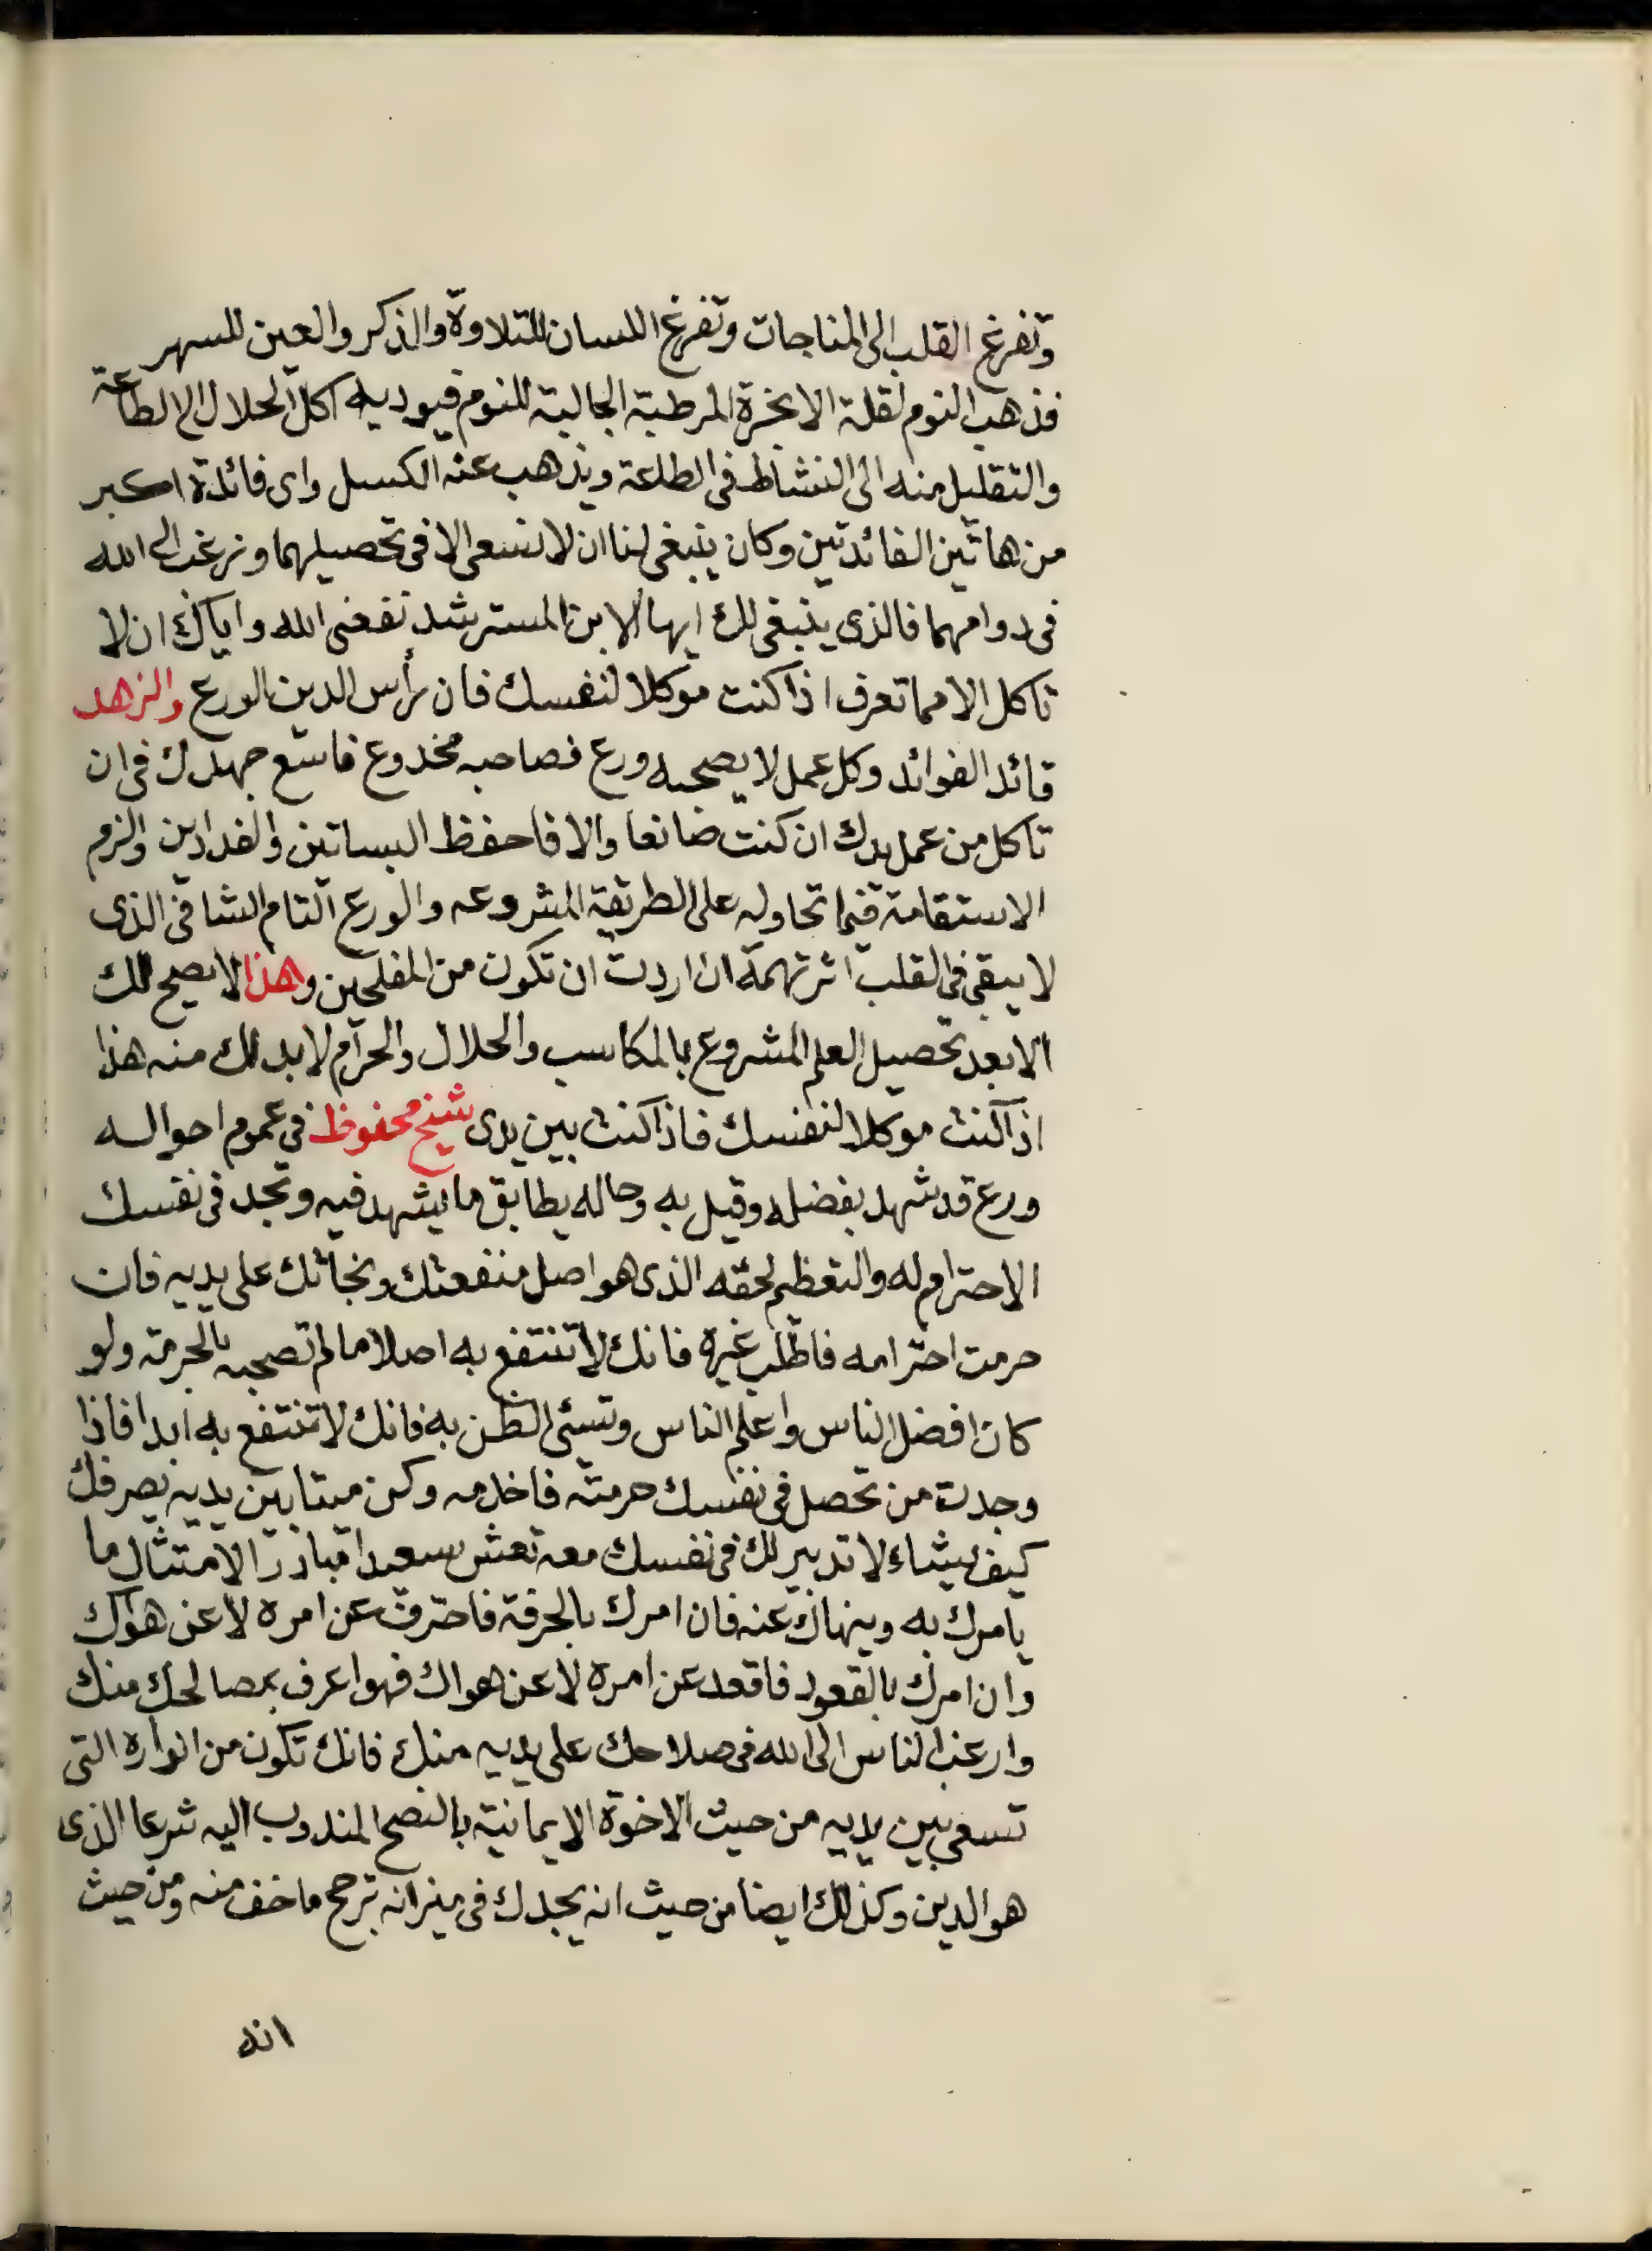 وتفرغ القلب الى المناجات وتفرغ اللسان للتلاوة والذكر والعين للسهر
فذهب النوم لقلة الابخرة المرطبة الجالبة للنوم فيوديه اكل الحلال الى الطاعة
والتقليل منه الى النشاط فى الطاعة ويذهب عنه الكسل واى فائدة اكبر
من هاتين الفائدتين وكان ينبغى لنا ان لا نسعى الا فى تحصيلهما ونرغب الى الله
فى دوامهما فالذى ينبغى لك ايها الابن المسترشد نفعنى الله واياك ان لا
تاكل الا مما تعرف اذا كنت موكلا لنفسك فان رأس الدين الورع والزهد
قائد الفوائد وكل عمل لا يصحبه ورع فصاحبه مخدوع فاسع جهدك فى ان
تاكل من عمل يدك ان كنت صانعا والا فاحفظ البساتين والفدادين والزم
الاستقامة فيما تحاوله على الطريقة المشروعه والورع التام الشافى الذى
لا يبقى فى القلب اثر تهمة ان اردت ان تكون من المفلحين وهذا لا يصح لك
الا بعد تحصيل العلم المشروع بالمكاسب والحلال والحرام لا بد لك منه هذا
اذا كنت موكلا لنفسك فاذا كنت بين يدى شيخ محفوظ فى عموم احواله
ورع قد شهد بفضله وقيل به وحاله يطابق ما يشهد فيه وتجد فى نفسك
الاحترام له والتعظيم لحقه الذى هو اصل منفعتك ونجاتك على يديه فان
حرمت احترامه فاطلب غيره فانك لا تنتفع به اصلا ما لم تصحبه بالحرمة ولو
كان افضل الناس واعلم الناس وتسئى الظن به فانك لا تنتفع به ابدا فاذا
وجدت من تحصل فى نفسك حرمته فاخدمه وكن ميتا بين يديه يصرفك
كيف يشاء لا تدبير لك فى نفسك معه تعش سعيدا مبادرا لامتثال ما
يامرك به وينهاك عنه فان امرك بالحرفة فاحترف عن امره لا عن هواك
وان امرك بالقعود فاقعد عن امره لا عن هواك فهو اعرف بمصالحك منك
وارغب الناس الى الله فى صلاحك على يديه منك فانك تكون من انواره التى
تسعى بين يديه من حيث الاخوة الايمانية بالنصح المندوب اليه شرعا الذى
هو الدين وكذلك ايضا من حيث انه يجدك فى ميزانه ترجح ما خف منه ومن حيث
انه